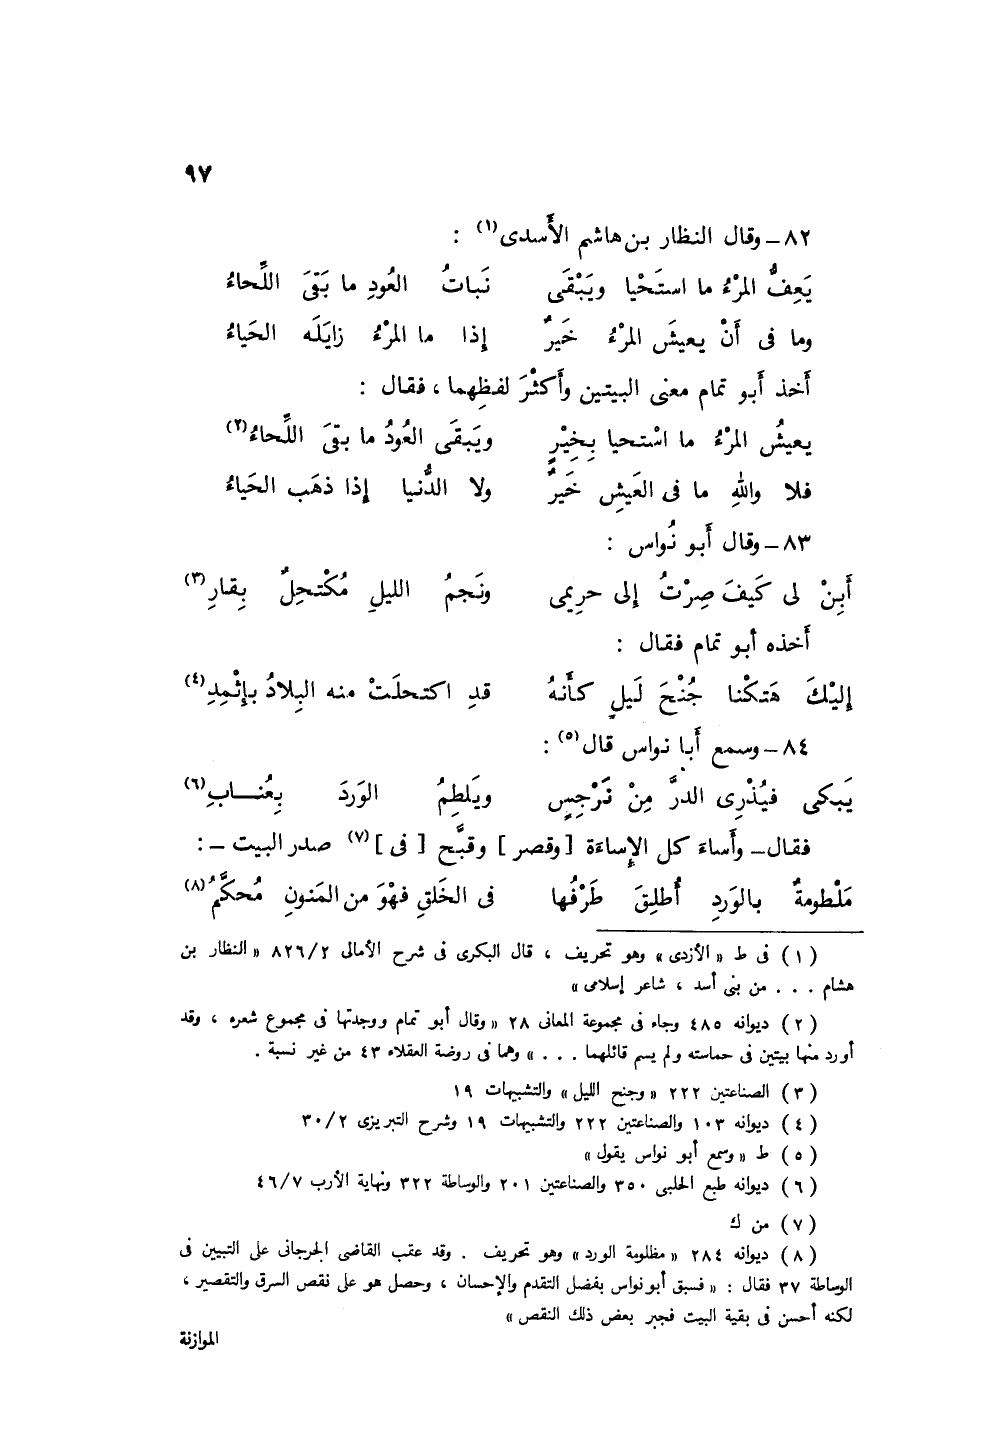 ٩٧
٨٢ – وقال النظار بن هاشم الأَسدى(١) :
يَعِفُّ المرْءُ ما استَحْيا ويَبْقَى نَباتُ العُودِ ما بَقىَ اللِّحاءُ
وما فى أَنْ يعيشَ المرْءُ خَيرٌ إِذا ما المرْءُ زايَلَه الحَياءُ
أَخذ أَبو تمام معنى البيتين وأَكثْرَ لفظِهما ، فقال :
يعيشُ المرْءُ ما اسْتحيا بِخيْرٍ ويَبقَى العُودُ ما بقىَ اللِّحاءُ(٢)
فلا واللهِ ما فى العَيشِ خَيرٌ ولا الدُّنيا إِذا ذهَب الحَياءُ
٨٣ – وقال أَبو نُواس :
أَبِنْ لى كَيفَ صِرْتُ إِلى حرِيمى ونَجمُ الليلِ مُكْتحِلٌ بِقارِ(٣)
أَخذه أبو تمام فقال :
إِليْكَ هَتكْنا جُنْحَ لَيلٍ كأَنهُ قدِ اكتحلَتْ منه البِلادُ بإِثْمِدِ(٤)
٨٤ – وسمع أَبا نواس قال(٥) :
يَبكى فيُذْرِى الدرَّ مِنْ نَرْجِسٍ ويَلطِمُ الوَردَ بِعُنــابِ(٦)
فقال – وأَساءَ كل الإِساءَة [ وقصر ] وقبَّح [ فى ](٧) صدر البيت – :
مَلْطومةٌ بالوَردِ أُطلِقَ طَرْفُها فى الخَلقِ فهْوَ من المَنونِ مُحكَّمُ(٨)
(١) فى ط « الأزدى » وهو تحريف ، قال البكرى فى شرح الأمالى ٨٢٦/٢ « النظار بن
هشام . . . من بنى أسد ، شاعر إسلامى »
(٢) ديوانه ٤٨٥ وجاء فى مجموعة المعانى ٢٨ « وقال أبو تمام ووجدتها فى مجموع شعره ، وقد
أورد منها بيتين فى حماسته ولم يسم قائلهما . . . » وهما فى روضة العقلاء ٤٣ من غير نسبة .
(٣) الصناعتين ٢٢٢ « وجنح الليل » والتشبيهات ١٩
(٤) ديوانه ١٠٣ والصناعتين ٢٢٢ والتشبيهات ١٩ وشرح التبريزى ٣٠/٢
(٥) ط « وسمع أبو نواس يقول »
(٦) ديوانه طبع الحلبى ٣٥٠ والصناعتين ٢٠١ والوساطة ٣٢٢ ونهاية الأرب ٤٦/٧
(٧) من ك
(٨) ديوانه ٢٨٤ « مظلومة الورد » وهو تحريف . وقد عقب القاضى الجرجانى على التبيين فى
الوساطة ٣٧ فقال : « فسبق أبو نواس بفضل التقدم والإحسان ، وحصل هو على نقص السرق والتقصير ،
لكنه أحسن فى بقية البيت فجبر بعض ذلك النقص »
الموازنة